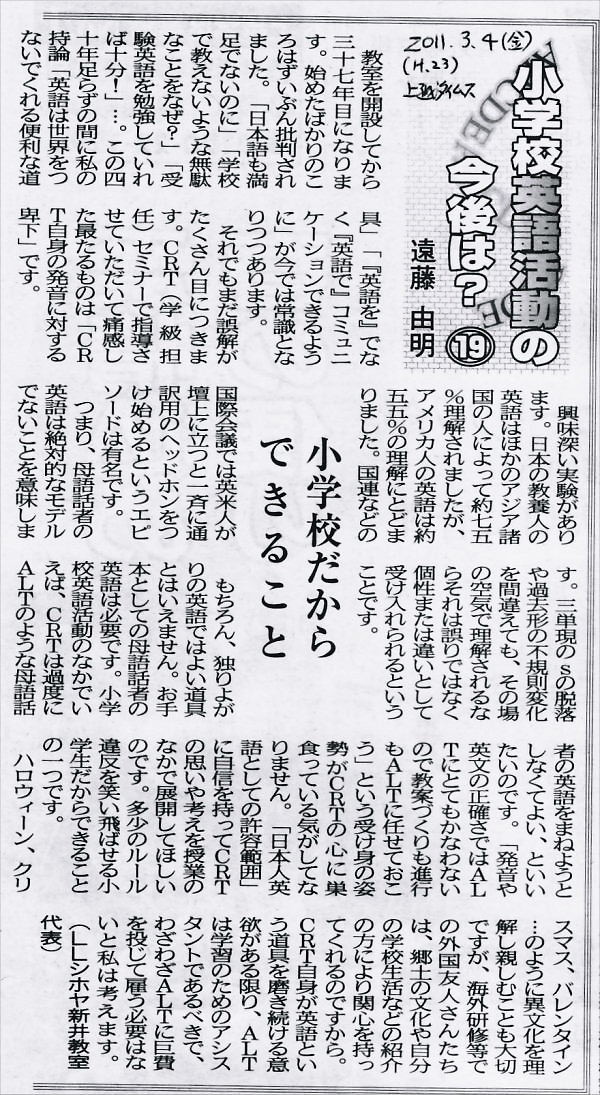 2011.3.4(金)
(H.23)
上越タイムス
小学校英語活動の
今後は?
⑲
遠藤 由明
教室を開設してから
三十七年目になりま
す。始めたばかりのこ
ろはずいぶん批判され
ました。「日本語も満
足でないのに」「学校
で教えないような無駄
なことをなぜ?」「受
験英語を勉強していれ
ば十分!」…。この四
十年足らずの間に私の
持論「英語は世界をつ
ないでくれる便利な道
具」「『英語を』でな
く『英語で』コミュニ
ケーションできるよう
に」が今では常識とな
りつつあります。
それでもまだ誤解が
たくさん目につきま
す。CRT(学級担
任)セミナーで指導さ
せていただいて痛感し
た最たるものは「CR
T自身の発音に対する
卑下」です。
小学校だから
できること
興味深い実験があり
ます。日本の教養人の
英語はほかのアジア諸
国の人によって約七五
%理解されましたが、
アメリカ人の英語は約
五五%の理解にとどま
りました。国連などの
国際会議では英米人が
壇上に立つと一斉に通
訳用のヘッドホンをつ
け始めるというエピ
ソードは有名です。
つまり、母語話者の
英語は絶対的なモデル
でないことを意味しま
す。三単現のsの脱落
や過去形の不規則変化
を間違えても、その場
の空気で理解されるな
らそれは誤りではなく
個性または違いとして
受け入れられるという
ことです。
もちろん、独りよが
りの英語ではよい道具
とはいえません。お手
本としての母語話者の
英語は必要です。小学
校英語活動のなかでい
えば、CRTは過度に
ALTのような母語話
者の英語をまねようと
しなくてよい、といい
たいのです。「発音や
英文の正確さではAL
Tにとてもかなわない
ので教案づくりも進行
もALTに任せておこ
う」という受け身の姿
勢がCRTの心に巣
食っている気がしてな
りません。「日本人英
語としての許容範囲」
に自信を持ってCRT
の思いや考えを授業の
なかで展開してほしい
のです。多少のルール
違反を笑い飛ばせる小
学生だからできること
の一つです。
ハロウィーン、クリ
スマス、バレンタイン
…のように異文化を理
解し親しむことも大切
ですが、海外研修等で
の外国友人さんたち
は、郷土の文化や自分
の学校生活などの紹介
の方により関心を持っ
てくれるのですから。
CRT自身が英語とい
う道具を磨き続ける意
欲がある限り、ALT
は学習のためのアシス
タントであるべきで、
わざわざALTに巨費
を投じて雇う必要はな
いと私は考えます。
(LLシホヤ新井教室
代表)